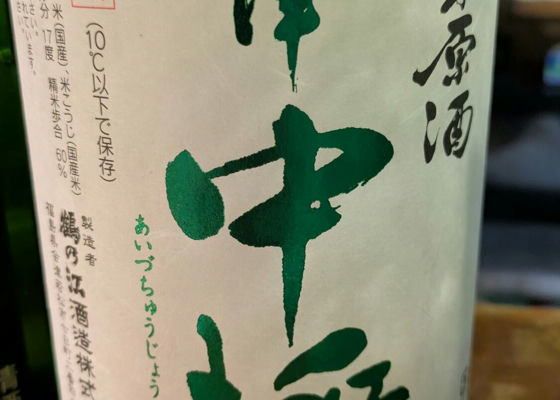 原酒
中
あいづちゅうじょう
(10℃以下で保存)
米(国産)、米こうじ(国産米)
分 17度 精米歩合 60%
れています。
さい。
製造者
鶴乃江酒造株式
福島県会津若松市